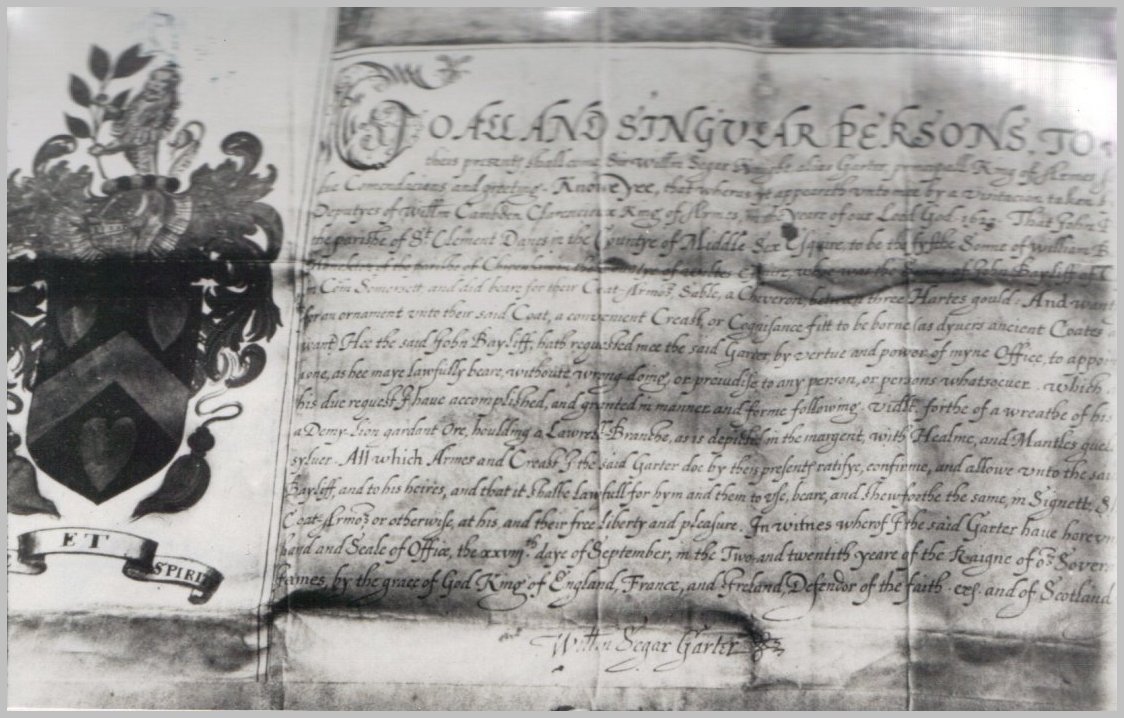 TO ALL AND SINGVLAR PERSONS. TO
theis presents shall come Sir Willm Segar Knight alias Garter, principall King of Armes
due Comendacions and greeting. Knowe Yee, that wheras yt appeareth vnto mee by a Visitacion taken
Deputyes of Willm Cambden Clarencieux King of Armes, in the Yeare of our Lord God. That John
the parishe of St Clement Danes in the Countye of Middle Sex Esquire, to be the fyfthe Sonne of William
of the parishe of in the of was the of John Bayliff of
in Com Somersett, and did beare for their Coat-Armor, Sable, a Cheveron betwen three Hartes gould: And want
for an ornament vnto their said Coat, a convenient Creast, or Cognisance fitt to be borne (as dyvers ancient Coates
want) Hee the said John Bayliff, hath requested mee the said Garter by vertue and power of myne Office, to appoin
one, as hee maye lawfully beare, withoute wrong doing, or preiudise to any person, or persons whatsoeuer. which
his due request I haue accomplished, and granted in manner and forme following. vidlt. forthe of a wreathe of his
a Demy-Lion gardant Ore, houlding a Lawrell-Branche, as is depicted in the margent, with Healme, and Mantles
sylver. All which Armes and Creast I the said Garter doe by theis presents ratifye, confirme, and allowe vnto the sai
Bayliff, and to his heires, and that it shalbe lawfull for hym and them to vse, beare, and shew forthe the same, in Signett,
Coat-Armor or otherwise, at his, and their free liberty and pleasure. In witnes wherof I the said Garter haue
hand and Seale of Office, the xxviijth daye of September, in the Two and twentith yeare of the Raigne of or Sover
James, by the grace of God King of England, France, and Ireland, Defendor of the faith &c. and of Scotland
Willm Segar Garter
ET
SPIRI